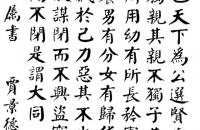 也天下為公選賢
為親其親不獨子其
所用幼有所長矜寡
養男有分女有歸貨
藏於己力惡其不
故謀閉而不興盜竊
而不閉是謂大同
屬書
賈景德